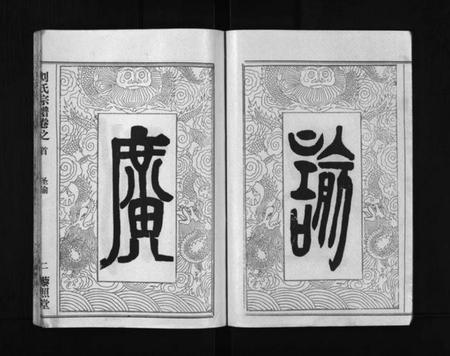 諭
廣
刘氏宗谱卷之首 圣谕 二 藜照堂